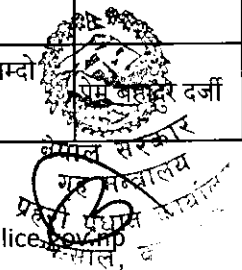 म्दो
प्रेम बहादुर दर्जी
नेपाल सरकार
गृह मन्त्रालय
प्रहरी प्रधान कार्यालय
lice.gov.np